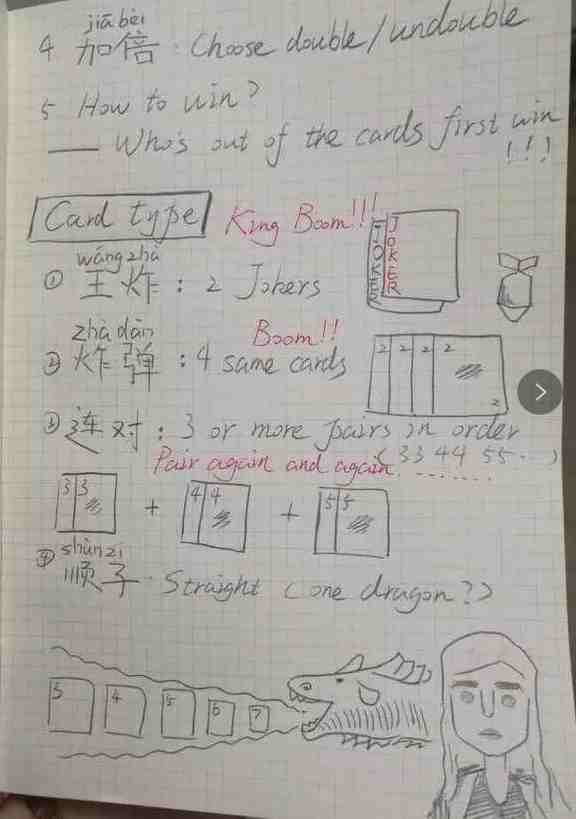 jiābèi
4 加倍 : Choose double/undouble
5 How to win?
— Who's out of the cards first win
!!!
Card type King Boom!!!
JOKER JOKER
wángzhà
① 王炸 : 2 Jokers
zhàdàn Boom!!
② 炸弹 : 4 same cards
2 2 2 2
2
③ 连对 : 3 or more pairs in order
Pair again and again (33 44 55..)
3 3 + 4 4 + 5 5
shùnzi
④ 顺子 . Straight (one dragon?)
3 4 5 6 7